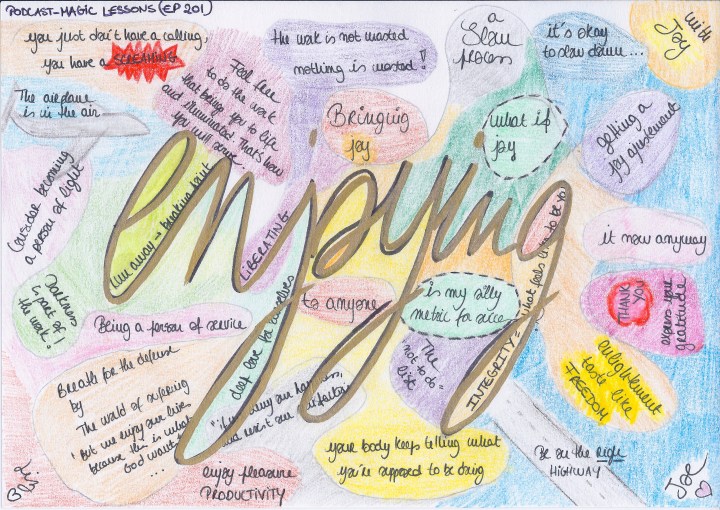 PODCAST-MAGIC LESSONS (EP 201)
you just don't have a calling,
you have a SCREAMING
Feel free
to do the work
that brings you to life
and illuminated. That's how
you will serve
the work is not wasted
nothing is wasted!
a
slow
process
it's okay
to slow down...
with
Joy
The airplane
is in the air
Bringing
joy
what if
joy
getting a
joy ajustement
Consider becoming
a person of light
enjoying
run away → breaking point
LIBERATING
what feels like to be you
it now anyway
Darkness
is part of
the work!
Being a person of service
deep love for ourselves
to anyone
is my silly
metric for
THANK
YOU
express your
gratitude
Breathe for the defense
by
The world of suffering
"But we enjoy our lives
because this is what
God wants"
...
and resist our
The
not to do
list
INTEGRITY =
enlightenment
taste like
FREEDOM
your body keeps telling what
you're supposed to be doing
Be on the right
HIGHWAY
enjoy pleasure
PRODUCTIVITY
Joe